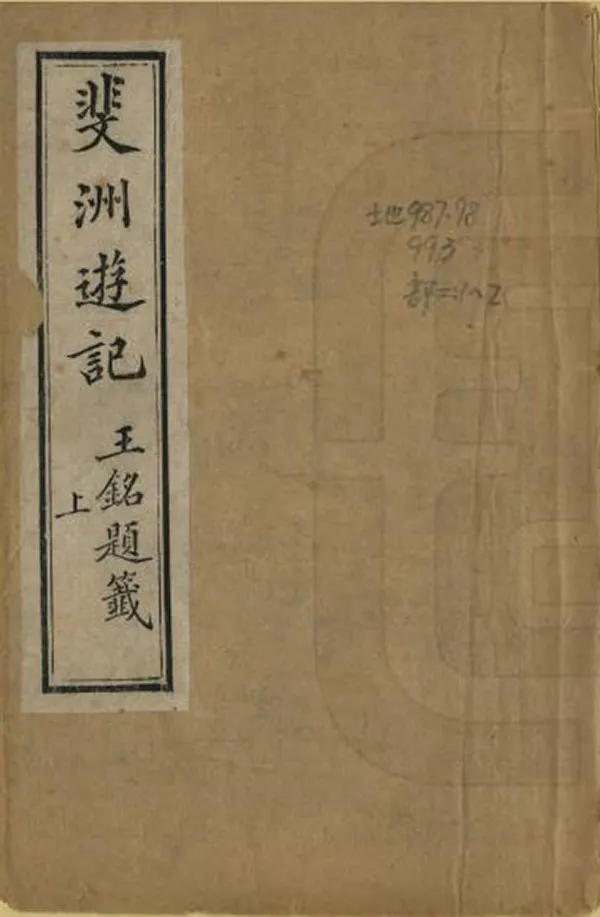 斐洲遊記
王銘題籤
上
地987.98
993
部二:1~2